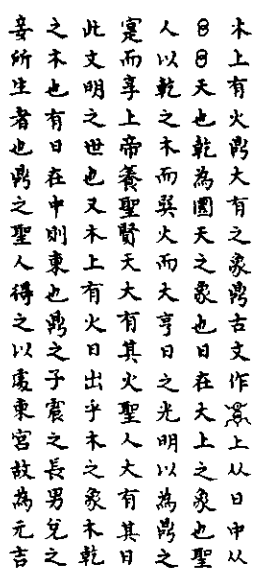 木上有火鼎大有之象鼎古文作上从日中从
天也乾為圜天之象也日在天上之象也聖
人以乾之木而巽火而大亨日之光明以為鼎之
寔而享上帝養聖賢天大有其火聖人大有其日
此文明之世也又木上有火日出乎木之象木乾
之木也有日在中則東也鼎之子震之長男兌之
妾所生者也鼎之聖人得之以處東宮故為元吉